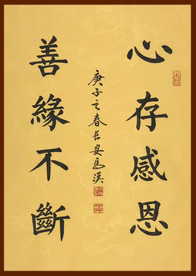 心存感恩
善緣不斷
庚子之春长安馬漢